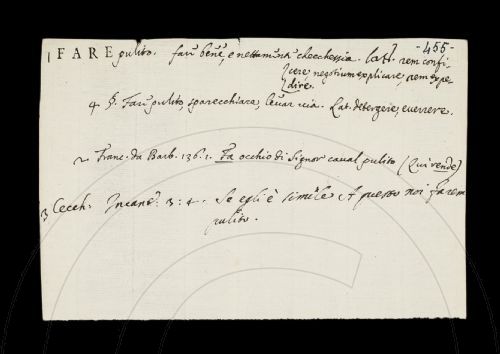 -455-
1 FARE pulito. far bene, e nettamente checchessia. latt. rem confi
cere, negotium explicare, rem expe
dire.
4 §. Far pulito, sparecchiare, levar via. Lat. detergere, everrere.
2 Franc. da Barb. 136. 1. Fa occhio di signor caval pulito (Qui rende)
3 Cecch. Incant. 3: 4. Se egli è simile A questo noi farem
pulito.